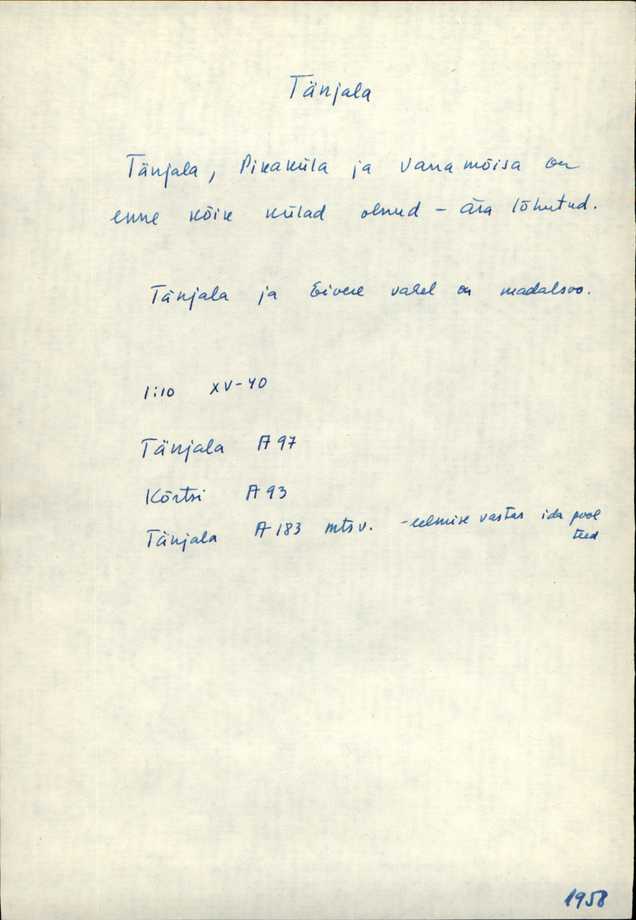 Tänjala
Tänjala, Pikaküla ja Vanamõisa on
enne kõik külad olnud - ära lõhutud.
Tänjala ja Eivere vahel on madalsoo.
1:10 XV-40
Tänjala A 97
Kõrtsi A 93
Tänjala A 183 mtsv. - eelmise vastas ida pool
teed
1958